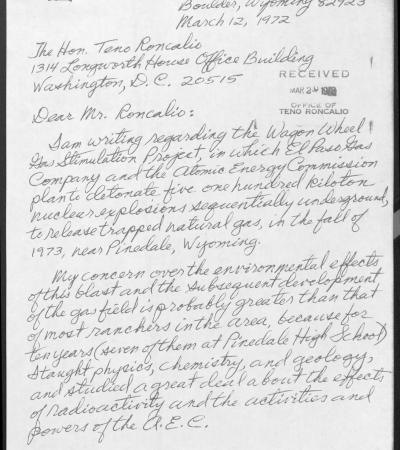 Boulder, Wyoming 82923
March 12, 1972
The Hon. Teno Roncalio
1314 Longworth House Office Building
Washington, D.C. 20515
RECEIVED
MAR 2
OFFICE OF
TENO RONCALIO
Dear Mr. Roncalio:
I am writing regarding the Wagon Wheel
Gas Stimulation Project, in which El Paso Gas
Company and the Atomic Energy Commission
plan to detonate five one hundred kiloton
nuclear explosions sequentially underground,
to release trapped natural gas, in the fall of
1973, near Pinedale, Wyoming.
My concern over the environmental effects
of this blast and the subsequent development
of the gas field is probably greater than that
of most ranchers in the area, because for
ten years (seven of them at Pinedale High School)
I taught physics, chemistry, and geology,
and studied a great deal about the effects
of radioactivity and the activities and
powers of the A.E.C.